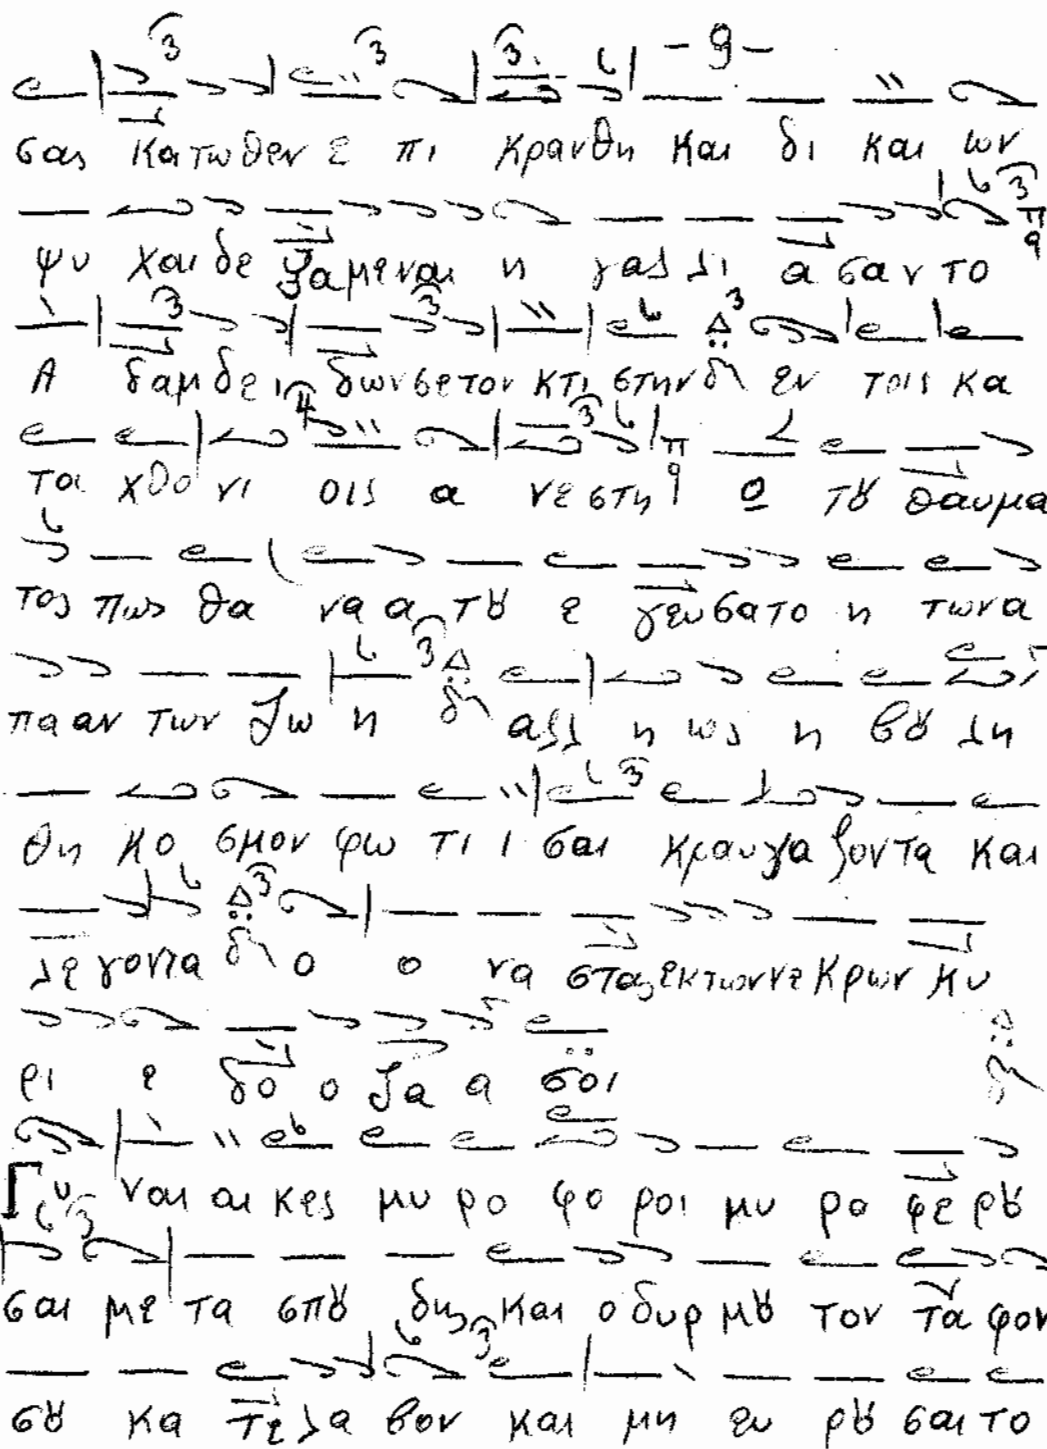 -9-
σας κατωθεν ε πι κρανθη και δι και ων
ψυ χαι δε ξαμεναι η γαλ λι α σαν το
Α δαμ δε ι δων σε τον κτι στην δι εν τοις κα
τα χθο νι οις α νε στη Ω τȣ θαυμα
τος πως θα να α τȣ ε γευσατο η των α
πα αν των ζω η δι αλλ η ως η βȣ λη
θη κο σμον φω τι ι σαι κραυγα ζοντα και
λε γοντα δι ο ο να στας εκ των νε κρων κυ
ρι ε δο ο ξα α σοι δι
Γυ ναι αι κες μυ ρο φο ροι μυ ρο φε ρȣ
σαι με τα σπȣ δης και ο δυρ μȣ τον τα φον
σȣ κα τε λα βον και μη ευ ρȣ σαι το